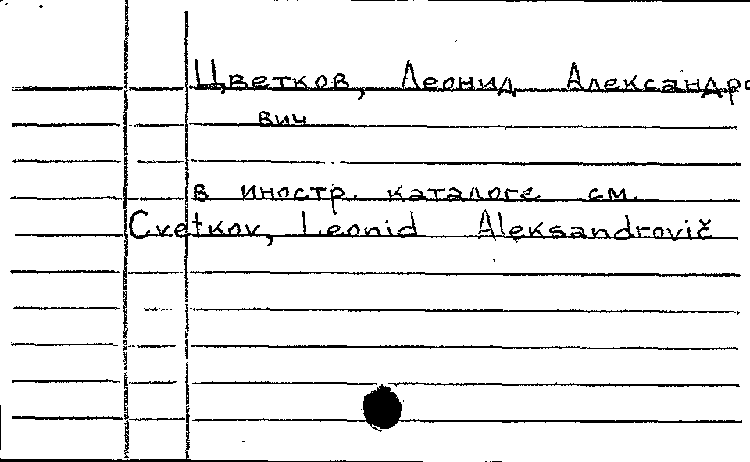 Цветков, Леонид Александро
вич
в иностр. каталоге см.
Cvetkov, Leonid Aleksandrovič